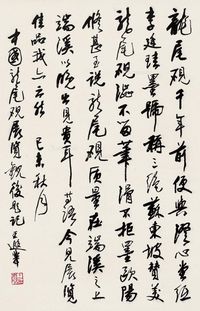 龍尾硯千年前便與澄心堂紙
李廷珪墨號稱三絕蘇東坡贊美
龍尾硯澀不留筆滑不拒墨歐陽
修甚至說龍尾硯质量在端溪之上
端溪以晚出見貴耳 今見展覽
佳品我亦云然 己未秋月
中國龍尾硯展覽觀後題記